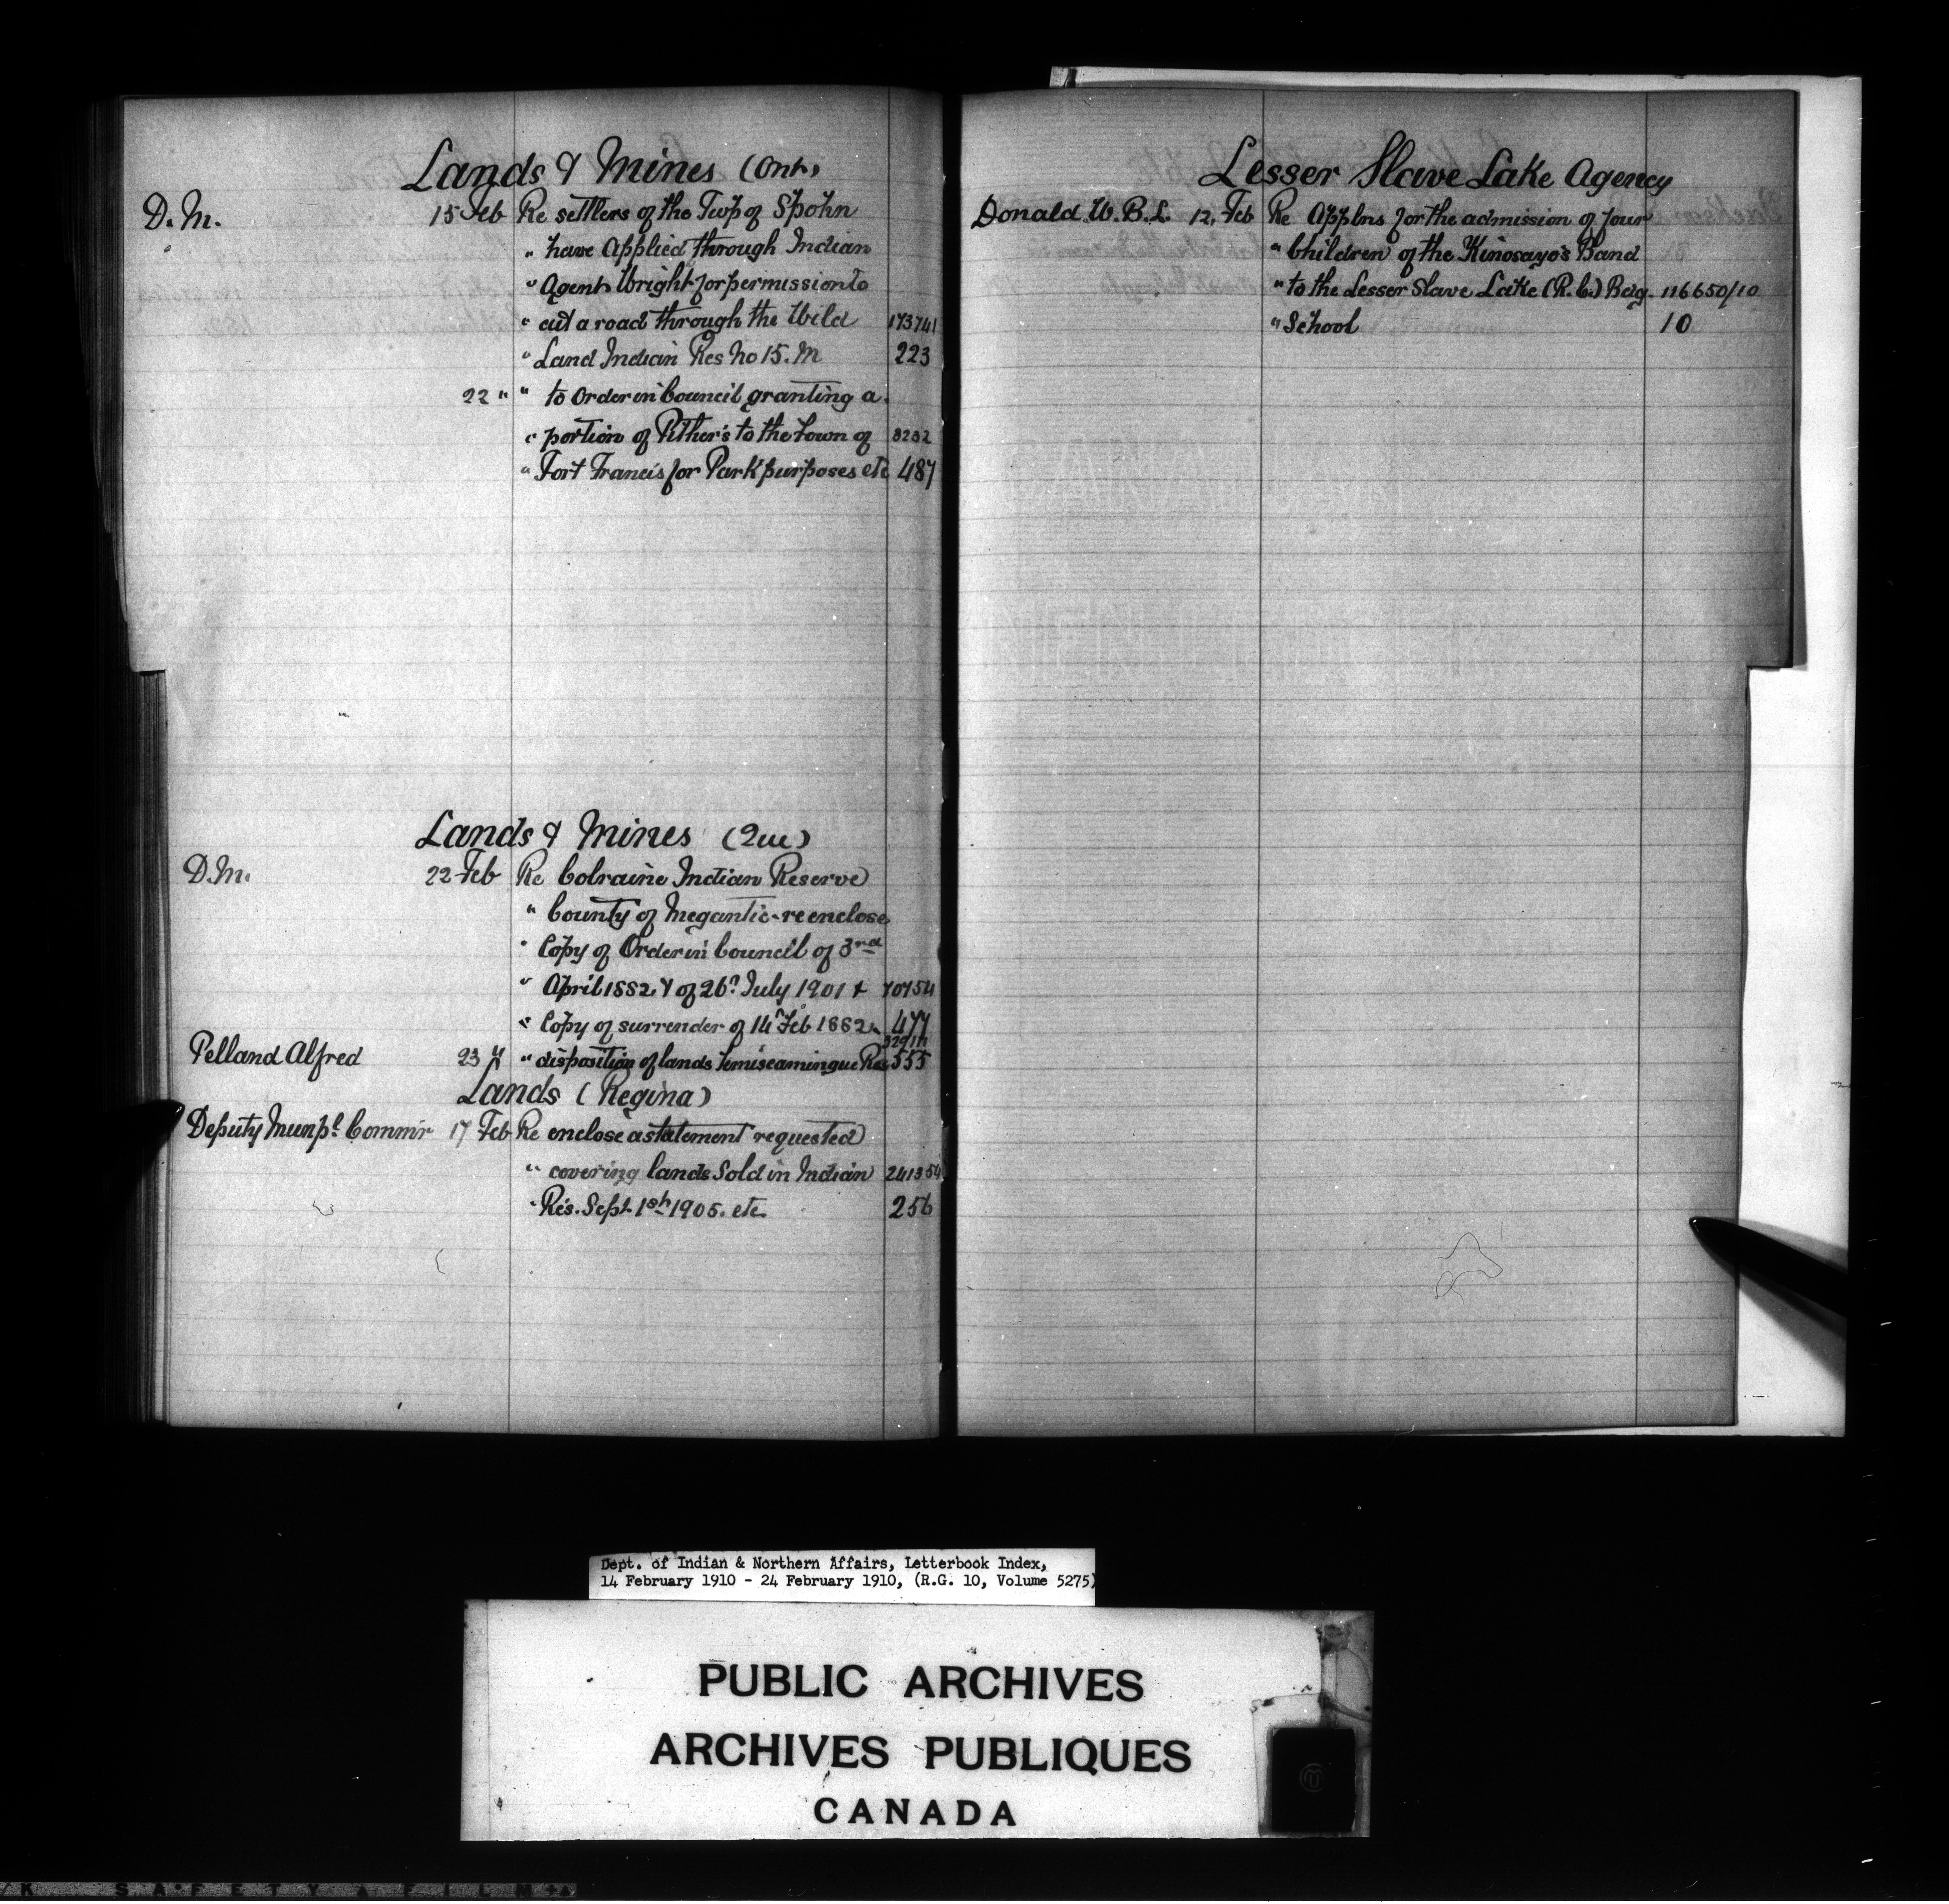 Lands & Mines (Ont)
D. M. 15 Feb Re settlers of the Twp of Spohn
" have Applied through Indian
" Agent Wright for permission to
" cut a road through the Wild 173741
" Land Indian Res No 15. M 223
22 " " to Order in Council granting a
" portion of Pither's to the Town of 3232
" Fort Francis for Park purposes etc 487
Lands & Mines (Que)
D.M. 22 Feb Re Colraine Indian Reserve
" County of Megantic - re enclose
" Copy of Order in Council of 3rd
" April 1882 & of 26th July 1901 & 70754
" Copy of surrender of 14th Feb 1882 477
Pelland Alfred 23 " " disposition of lands Temiscamingue Res 555
Lands (Regina)
Deputy Munpl Commr 17 Feb Re enclose a statement requested
" covering lands Sold in Indian 241354
" Res. Sept 1st 1905. etc. 256
Lesser Slave Lake Agency
Donald W. B. L. 12, Feb Re Applns for the admission of four
" Children of the Kinosayo's Band
" to the Lesser Slave Lake (R.C.) Bdg. 116650/10
" School 10
Dept. of Indian & Northern Affairs, Letterbook Index,
14 February 1910 - 24 February 1910, (R.G. 10, Volume 5275)
PUBLIC ARCHIVES
ARCHIVES PUBLIQUES
CANADA
S A F E T Y A F I L M